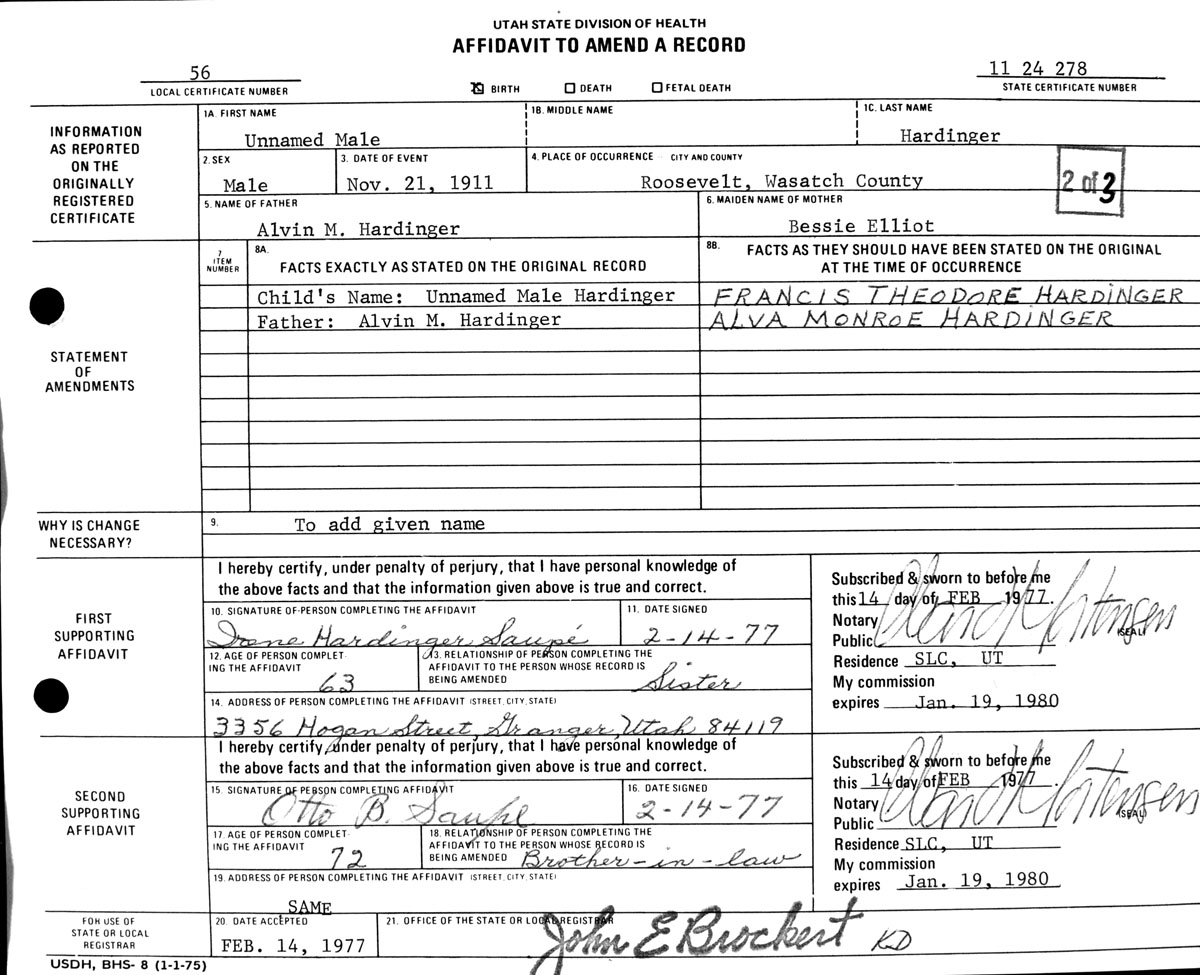 UTAH STATE DIVISION OF HEALTH
AFFIDAVIT TO AMEND A RECORD
56
LOCAL CERTIFICATE NUMBER
☒ BIRTH ☐ DEATH ☐ FETAL DEATH
11 24 278
STATE CERTIFICATE NUMBER
INFORMATION
AS REPORTED
ON THE
ORIGINALLY
REGISTERED
CERTIFICATE
1A. FIRST NAME
Unnamed Male
1B. MIDDLE NAME
1C. LAST NAME
Hardinger
2. SEX
Male
3. DATE OF EVENT
Nov. 21, 1911
4. PLACE OF OCCURRENCE CITY AND COUNTY
Roosevelt, Wasatch County
2 of 3
5. NAME OF FATHER
Alvin M. Hardinger
6. MAIDEN NAME OF MOTHER
Bessie Elliot
STATEMENT
OF
AMENDMENTS
7
ITEM
NUMBER
8A.
FACTS EXACTLY AS STATED ON THE ORIGINAL RECORD
8B.
FACTS AS THEY SHOULD HAVE BEEN STATED ON THE ORIGINAL
AT THE TIME OF OCCURRENCE
Child's Name: Unnamed Male Hardinger
FRANCIS THEODORE HARDINGER
Father: Alvin M. Hardinger
ALVA MONROE HARDINGER
WHY IS CHANGE
NECESSARY?
9.
To add given name
FIRST
SUPPORTING
AFFIDAVIT
I hereby certify, under penalty of perjury, that I have personal knowledge of
the above facts and that the information given above is true and correct.
10. SIGNATURE OF PERSON COMPLETING THE AFFIDAVIT
Hardinger Saupé
11. DATE SIGNED
2-14-77
12. AGE OF PERSON COMPLET-
ING THE AFFIDAVIT
63
13. RELATIONSHIP OF PERSON COMPLETING THE
AFFIDAVIT TO THE PERSON WHOSE RECORD IS
BEING AMENDED
Sister
14. ADDRESS OF PERSON COMPLETING THE AFFIDAVIT (STREET, CITY, STATE)
3356 Hogan Street, Granger, Utah 84119
Subscribed & sworn to before me
this 14 day of FEB 1977.
Notary
Public
(SEAL)
Residence SLC, UT
My commission
expires Jan. 19, 1980
SECOND
SUPPORTING
AFFIDAVIT
I hereby certify, under penalty of perjury, that I have personal knowledge of
the above facts and that the information given above is true and correct.
15. SIGNATURE OF PERSON COMPLETING AFFIDAVIT
Otto B. Saupe
16. DATE SIGNED
2-14-77
17. AGE OF PERSON COMPLET-
ING THE AFFIDAVIT
72
18. RELATIONSHIP OF PERSON COMPLETING THE
AFFIDAVIT TO THE PERSON WHOSE RECORD IS
BEING AMENDED
Brother-in-law
19. ADDRESS OF PERSON COMPLETING THE AFFIDAVIT (STREET, CITY, STATE)
SAME
Subscribed & sworn to before me
this 14 day of FEB 1977
Notary
Public
(SEAL)
Residence SLC, UT
My commission
expires Jan. 19, 1980
FOR USE OF
STATE OR LOCAL
REGISTRAR
20. DATE ACCEPTED
FEB. 14, 1977
21. OFFICE OF THE STATE OR LOCAL REGISTRAR
John E Brockert KD
USDH, BHS- 8 (1-1-75)